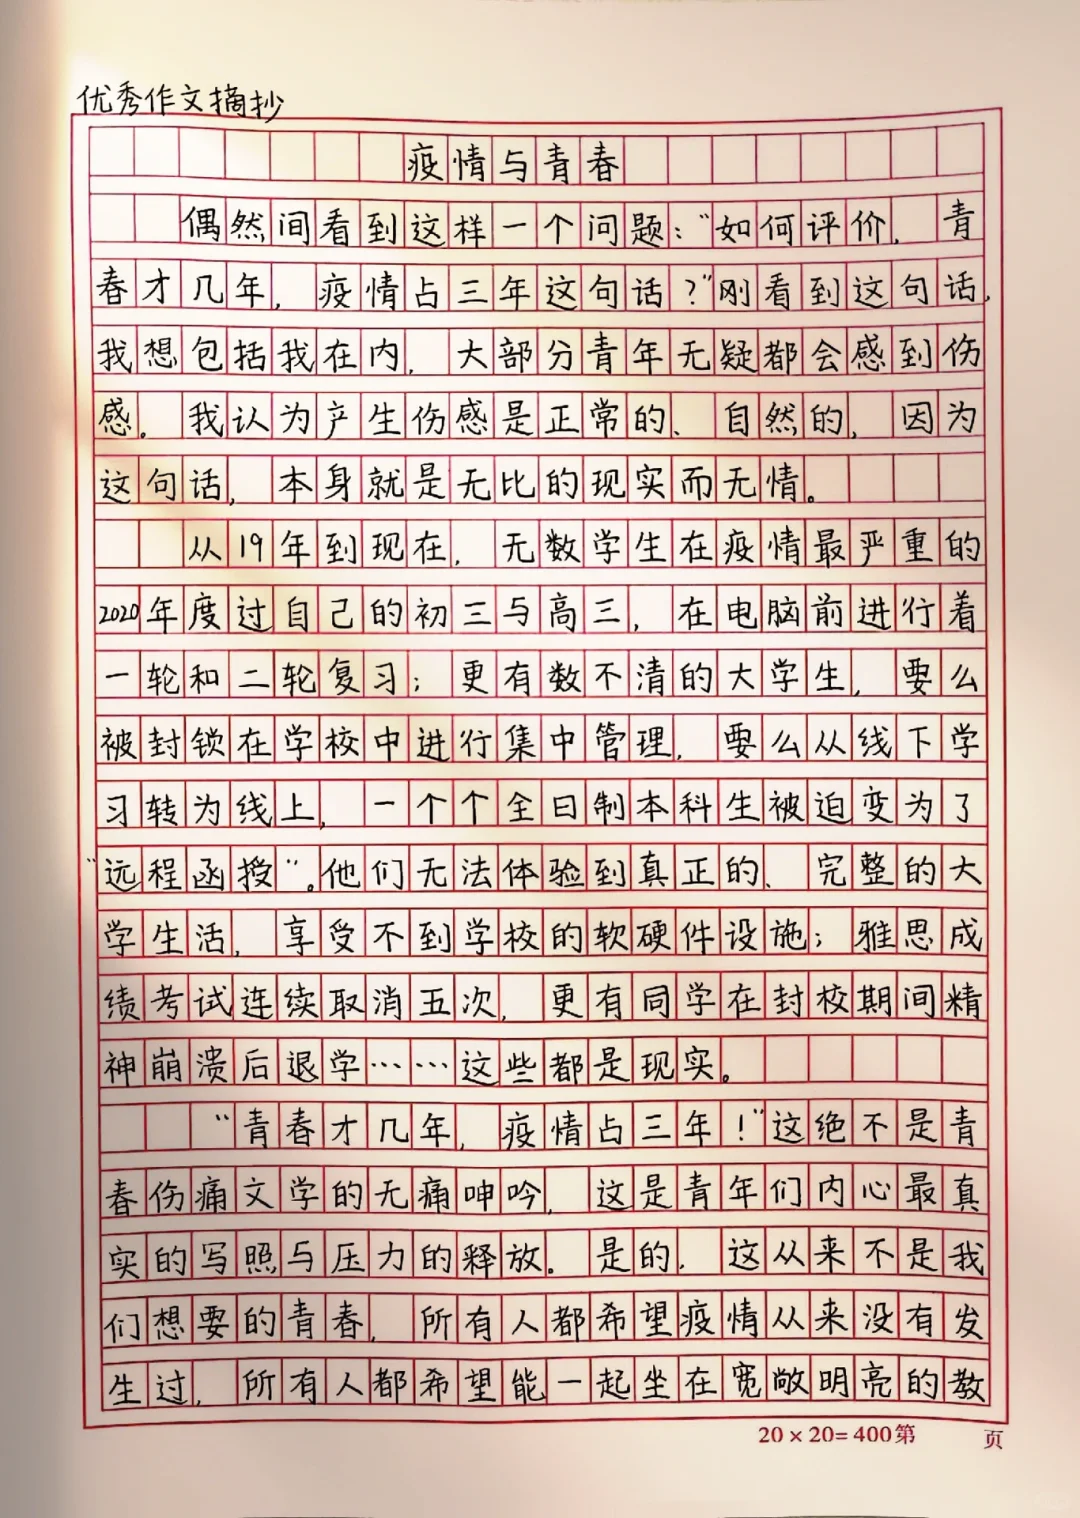 优秀作文摘抄
疫情与青春
偶然间看到这样一个问题：“如何评价，青
春才几年，疫情占三年这句话？”刚看到这句话，
我想包括我在内，大部分青年无疑都会感到伤
感。我认为产生伤感是正常的、自然的，因为
这句话，本身就是无比的现实而无情。
从19年到现在，无数学生在疫情最严重的
2020年度过自己的初三与高三，在电脑前进行着
一轮和二轮复习；更有数不清的大学生，要么
被封锁在学校中进行集中管理，要么从线下学
习转为线上，一个个全日制本科生被迫变为了
“远程函授”。他们无法体验到真正的、完整的大
学生活，享受不到学校的软硬件设施；雅思成
绩考试连续取消五次，更有同学在封校期间精
神崩溃后退学……这些都是现实。
“青春才几年，疫情占三年！”这绝不是青
春伤痛文学的无痛呻吟，这是青年们内心最真
实的写照与压力的释放。是的，这从来不是我
们想要的青春，所有人都希望疫情从来没有发
生过，所有人都希望能一起坐在宽敞明亮的教
20×20=400第 页